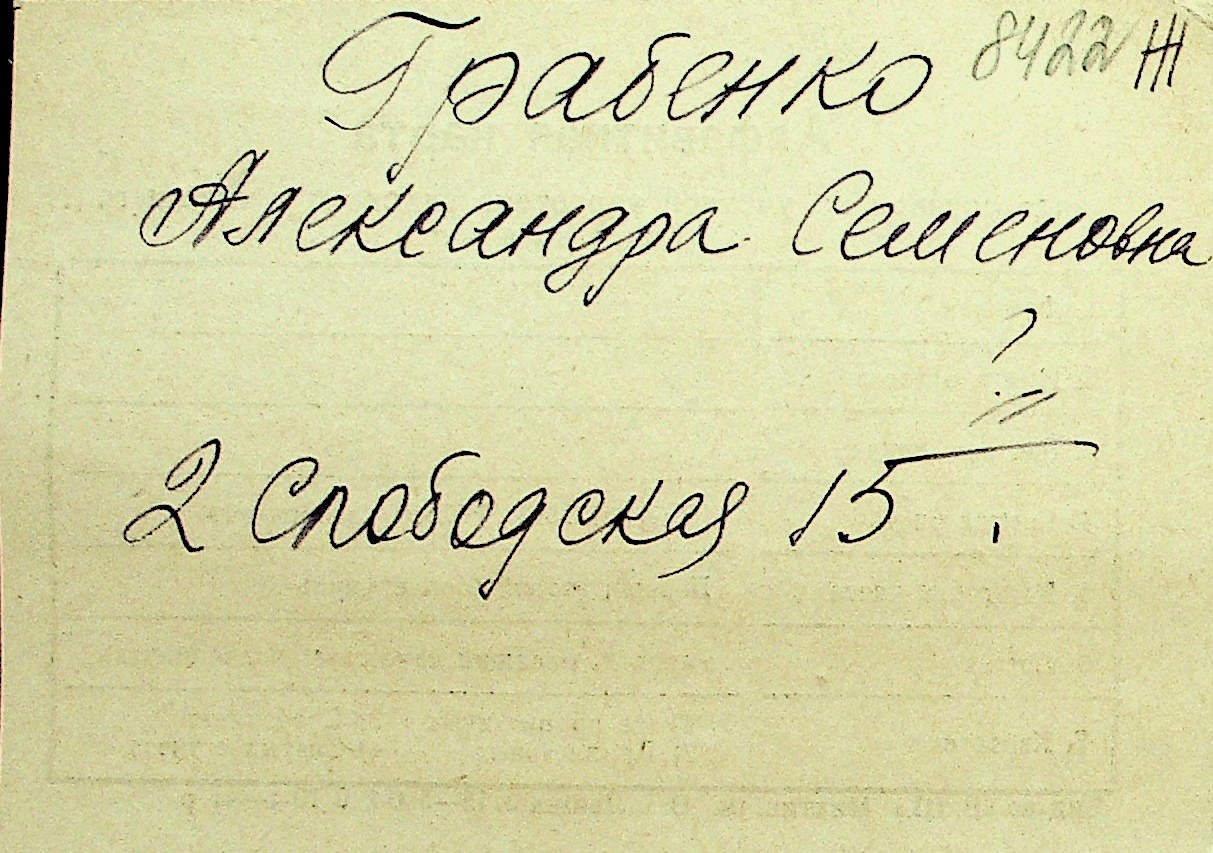 Грабенко 8422 Ж
Александра Семеновна
?
2 Слободская 15